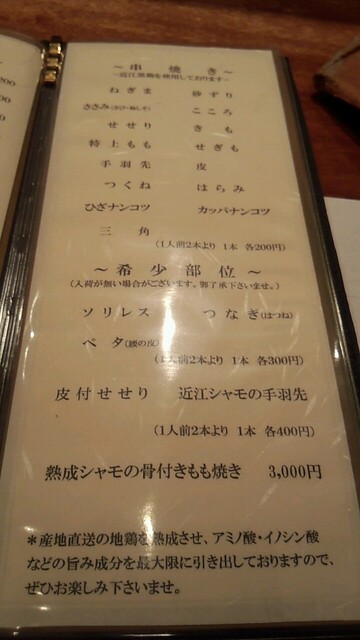 ～串焼き～
～近江黒鶏を使用しております～
ねぎま 砂ずり
ささみ(わさび・梅しそ) こころ
せせり きも
特上もも せぎも
手羽先 皮
つくね はらみ
ひざナンコツ カッパナンコツ
三角
(1人前2本より 1本 各200円)
～希少部位～
(入荷が無い場合がございます。御了承下さいませ。)
ソリレス つなぎ(はつね)
ペタ(腰の皮)
(1人前2本より 1本 各300円)
皮付せせり 近江シャモの手羽先
(1人前2本より 1本 各400円)
熟成シャモの骨付きもも焼き 3,000円
＊産地直送の地鶏を熟成させ、アミノ酸・イノシン酸
などの旨み成分を最大限に引き出しておりますので、
ぜひお楽しみ下さいませ。